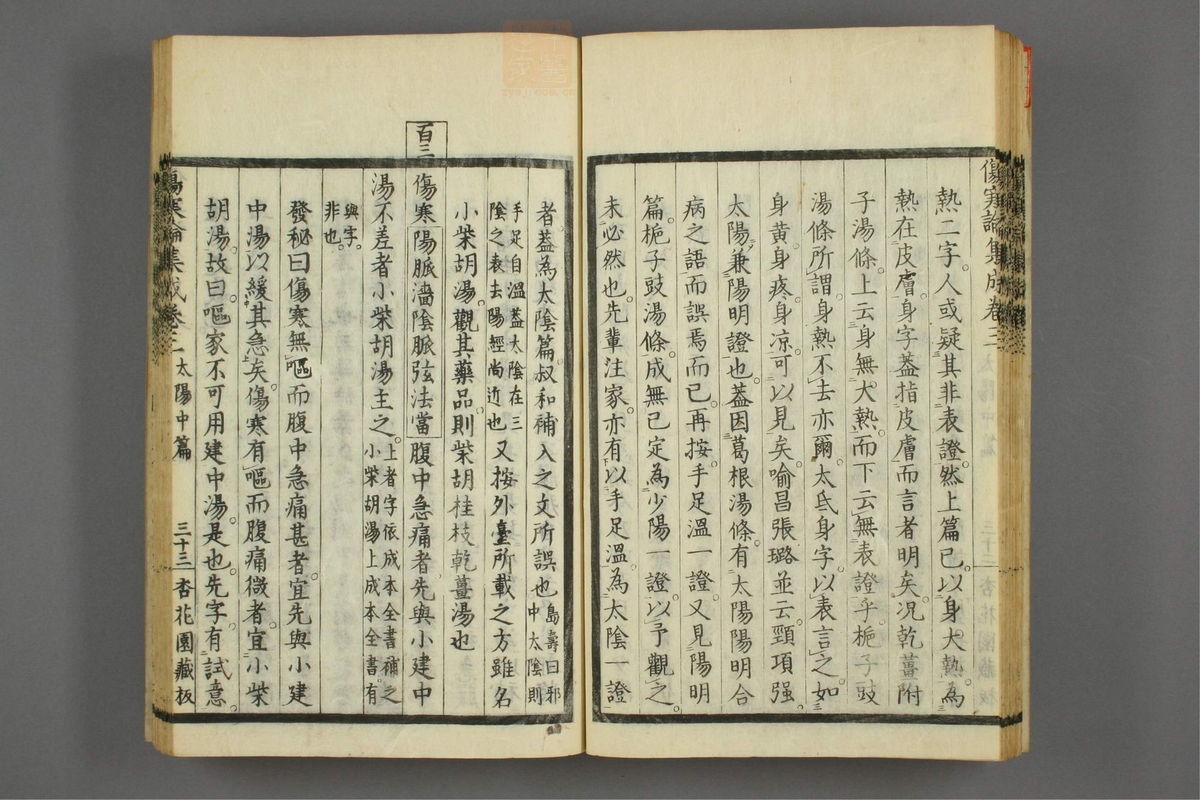 傷寒論集成卷三
熱二字人或疑其非表證然上篇已以身大熱為
熱在皮膚身字蓋指皮膚而言者明矣况乾薑附
子湯條上云身無大熱而下云無表證乎梔子豉
湯條所謂身熱不去亦爾太氐身字以表言之如
身黄身疼身凉可以見矣喻昌張璐並云頸項强
太陽兼陽明證也蓋因葛根湯條有太陽陽明合
病之語而誤焉而已再按手足溫一證又見陽明
篇梔子豉湯條成無已定為少陽一證以予觀之
未必然也先輩注家亦有以手足溫為太陰一證
者蓋為太陰篇叔和補入之文所誤也島壽曰邪中太陰則
手足自溫蓋太陰在三陰之表去陽經尚近也又按外臺所載之方雖名
小柴胡湯觀其藥品則柴胡桂枝乾薑湯也
百三
傷寒陽脈濇陰脈弦法當腹中急痛者先與小建中
湯不差者小柴胡湯主之上者字依成本全書補之小柴胡湯上成本全書有
與字非也
發秘曰傷寒無嘔而腹中急痛甚者宜先與小建
中湯以緩其急矣傷寒有嘔而腹痛微者宜小柴
胡湯故曰嘔家不可用建中湯是也先字有試意
傷寒論集成卷三 太陽中篇 三十三 杏花園藏板